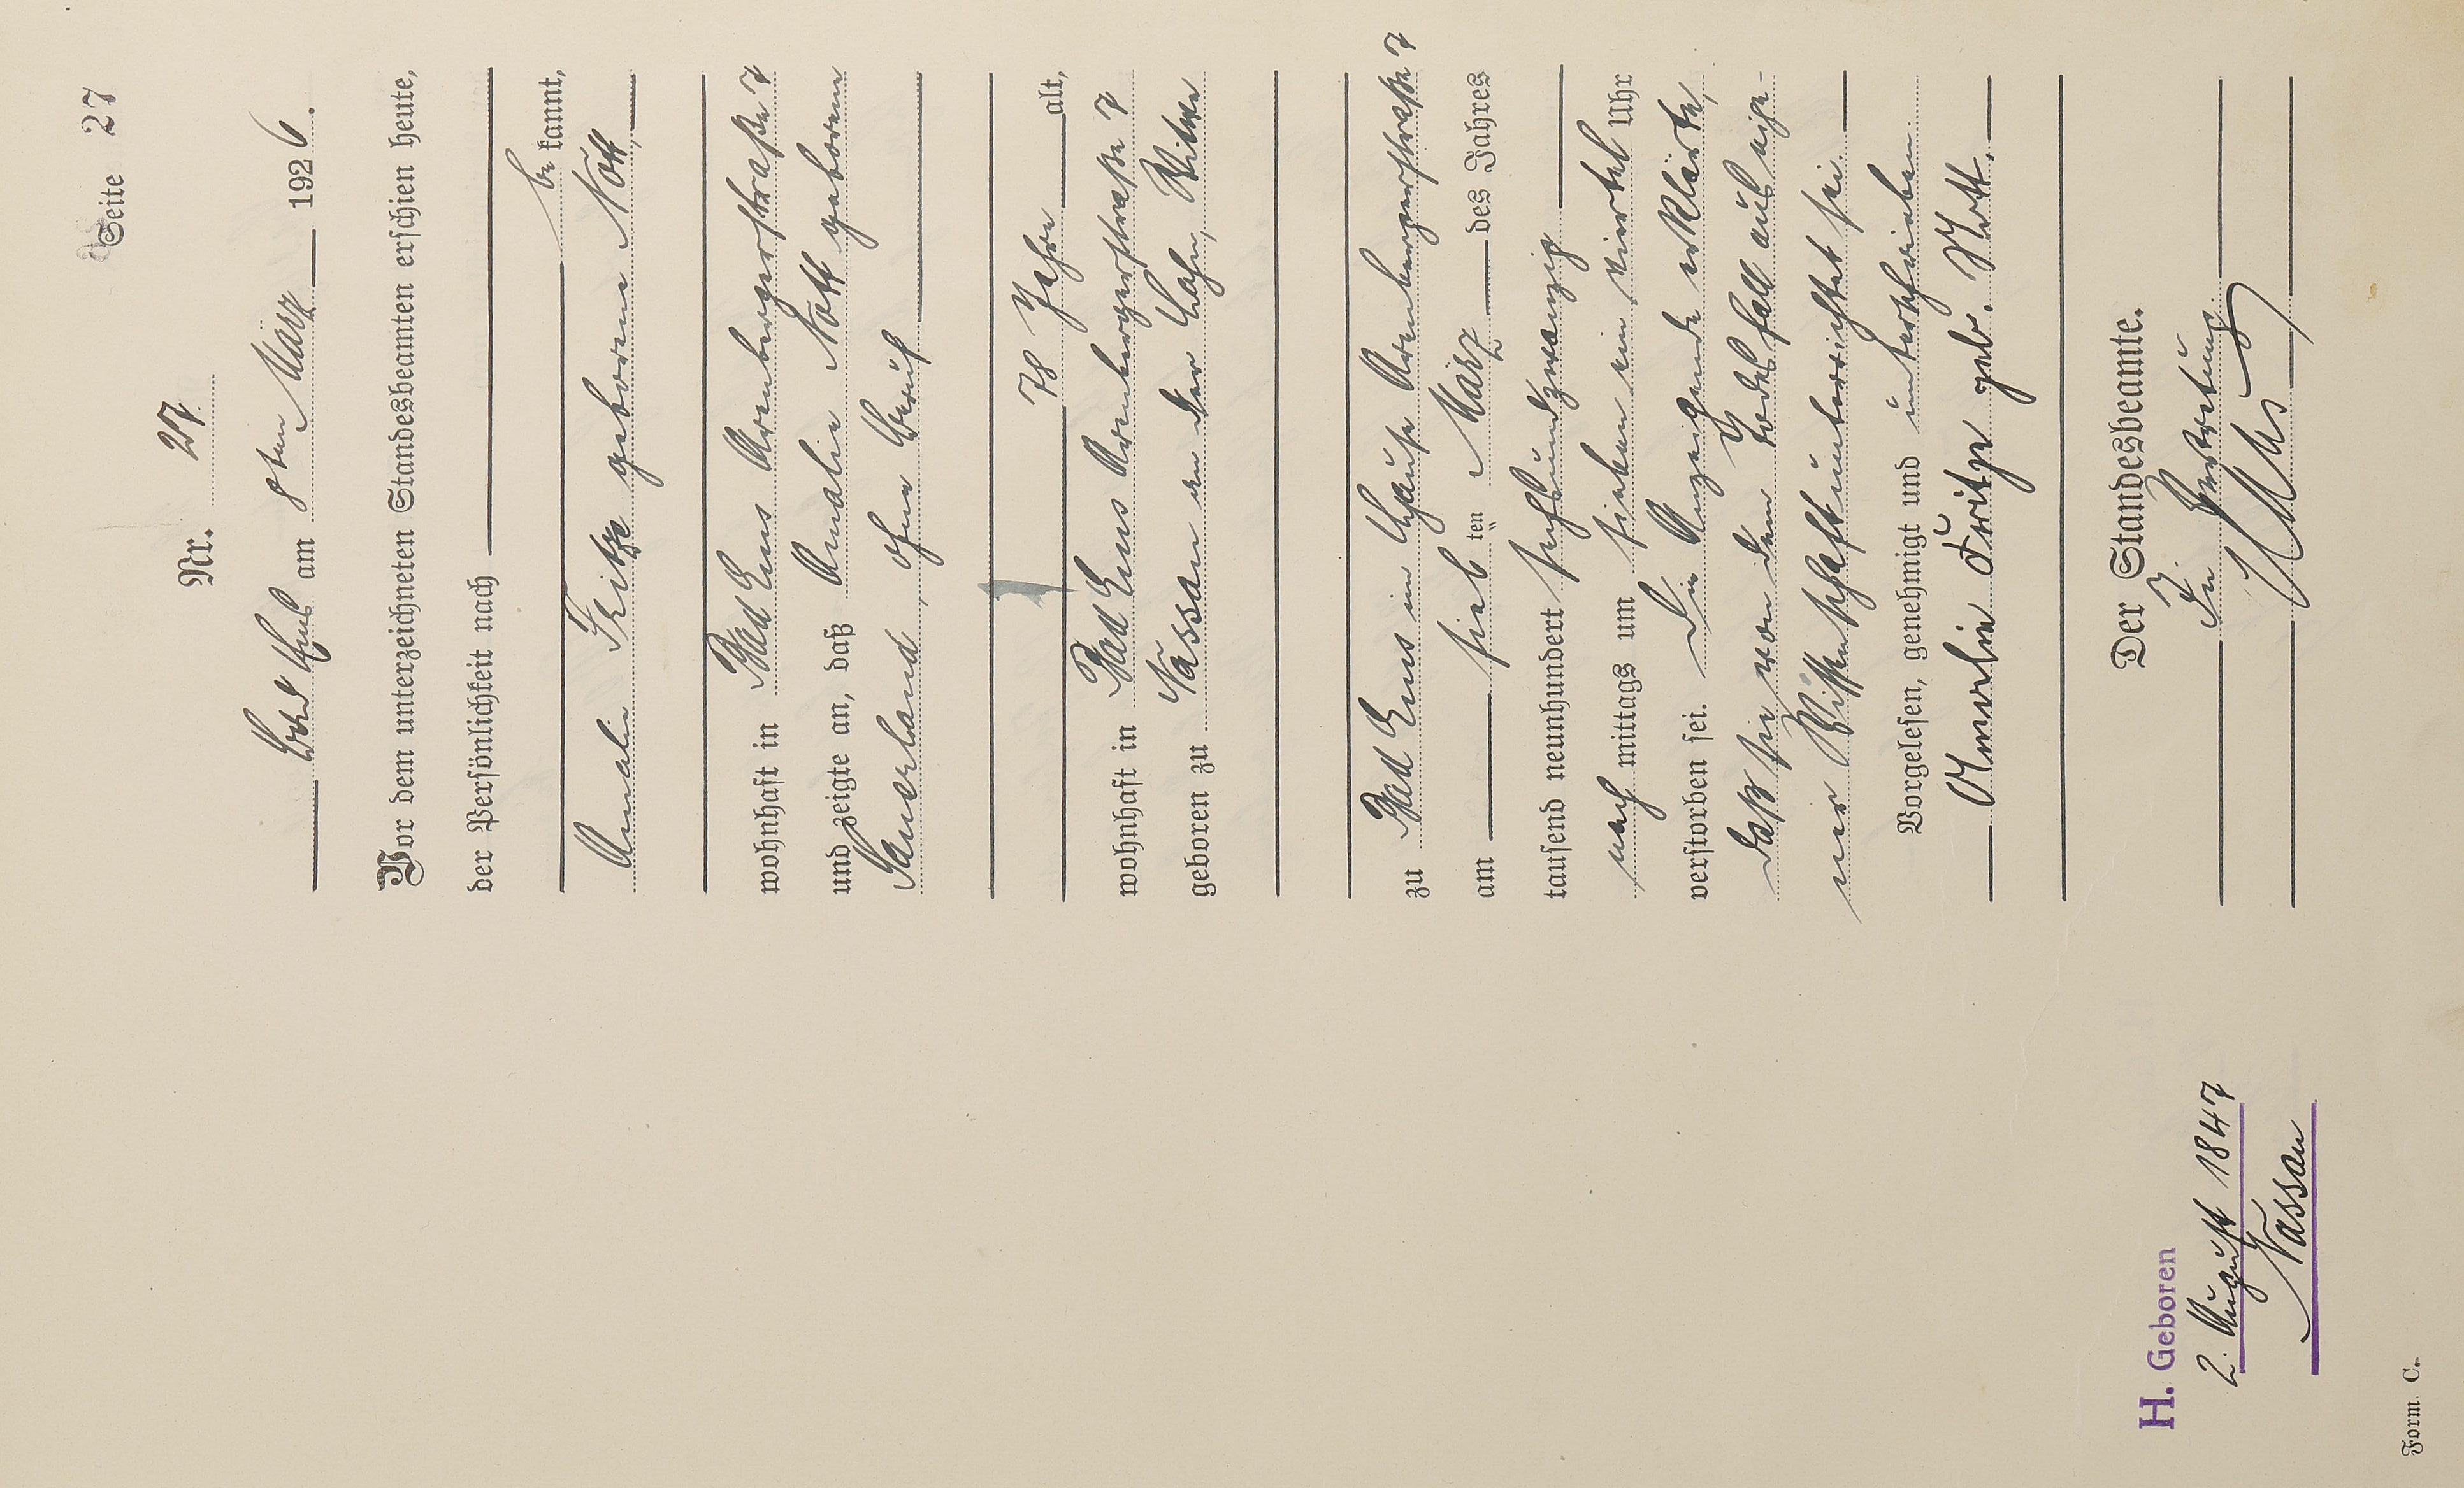 Seite 27
Nr. 27
Bad Ems am 8ten März 1926.
Vor dem unterzeichneten Standesbeamten erschien heute,
der Persönlichkeit nach
bekannt,
Amalie Fritze geborene Nott,
wohnhaft in Bad Ems Arenbergerstraße 7
und zeigte an, daß Amalie Nott geborene
Sauerland, ohne Beruf
78 Jahre alt,
wohnhaft in Bad Ems Arenbergerstraße 7
geboren zu Nassau an der Lahn, Witwe
zu Bad Ems im Hause Arenbergerstraße 7
am siebten März des Jahres
tausend neunhundert sechsundzwanzig
nach mittags um sieben ein viertel Uhr
verstorben sei. Die Anzeigende erklärte,
daß sie von dem Todesfall aus eige-
ner Wissenschaft unterrichtet sei.
Vorgelesen, genehmigt und unterschrieben
Amalie Fritze geb. Nott.
Der Standesbeamte.
In Vertretung
H. Geboren
2. August 1847
Nassau
Form. C.